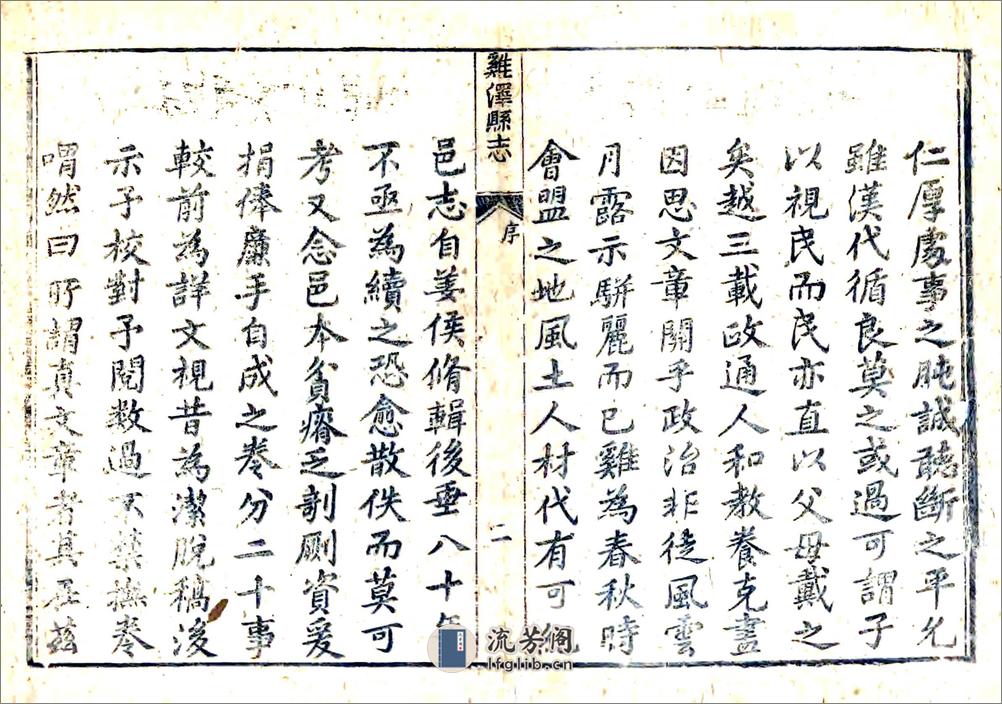 仁厚處事之肫誠聽斷之平允
雖漢代循良莫之或過可謂子
以視民而民亦直以父母戴之
矣越三載政通人和教養克盡
因思文章關乎政治非徒風雲
月露示駢麗而已雞為春秋時
會盟之地風土人材代有可
雞澤縣志
序
二
邑志自姜侯脩輯後垂八十年
不亟為續之恐愈散佚而莫可
考又念邑本貧瘠乏剞劂資爰
捐俸廉手自成之卷分二十事
較前為詳文視昔為潔脫稿後
示予校對予閱數過不禁撫卷
喟然曰所謂真文章者其在茲
流芳阁
lfglib.cn